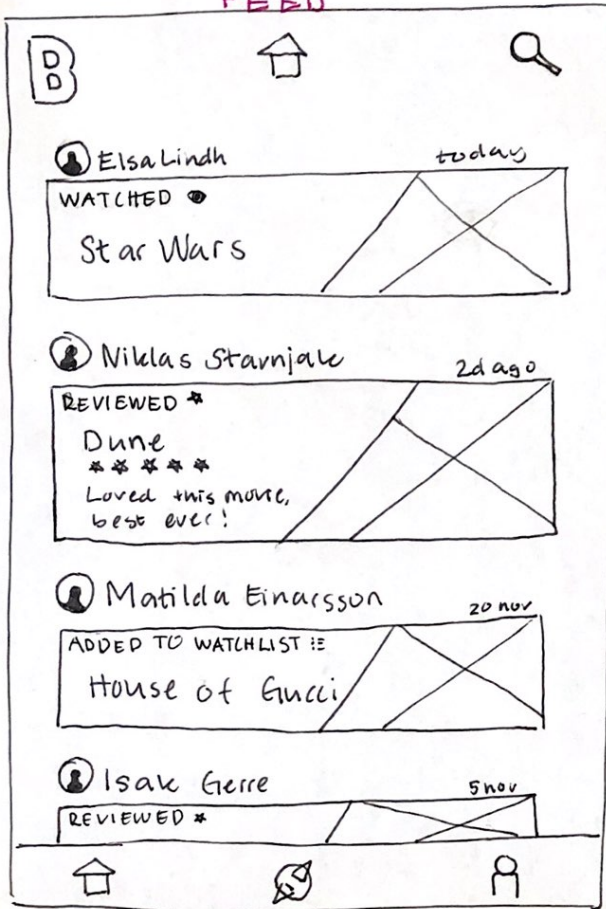 FEED
B
Elsa Lindh
today
WATCHED
Star Wars
Niklas Stavnjak
2d ago
REVIEWED
Dune
Loved this movie,
best ever!
Matilda Einarsson
20 nov
ADDED TO WATCHLIST
House of Gucci
Isak Gerre
5 nov
REVIEWED